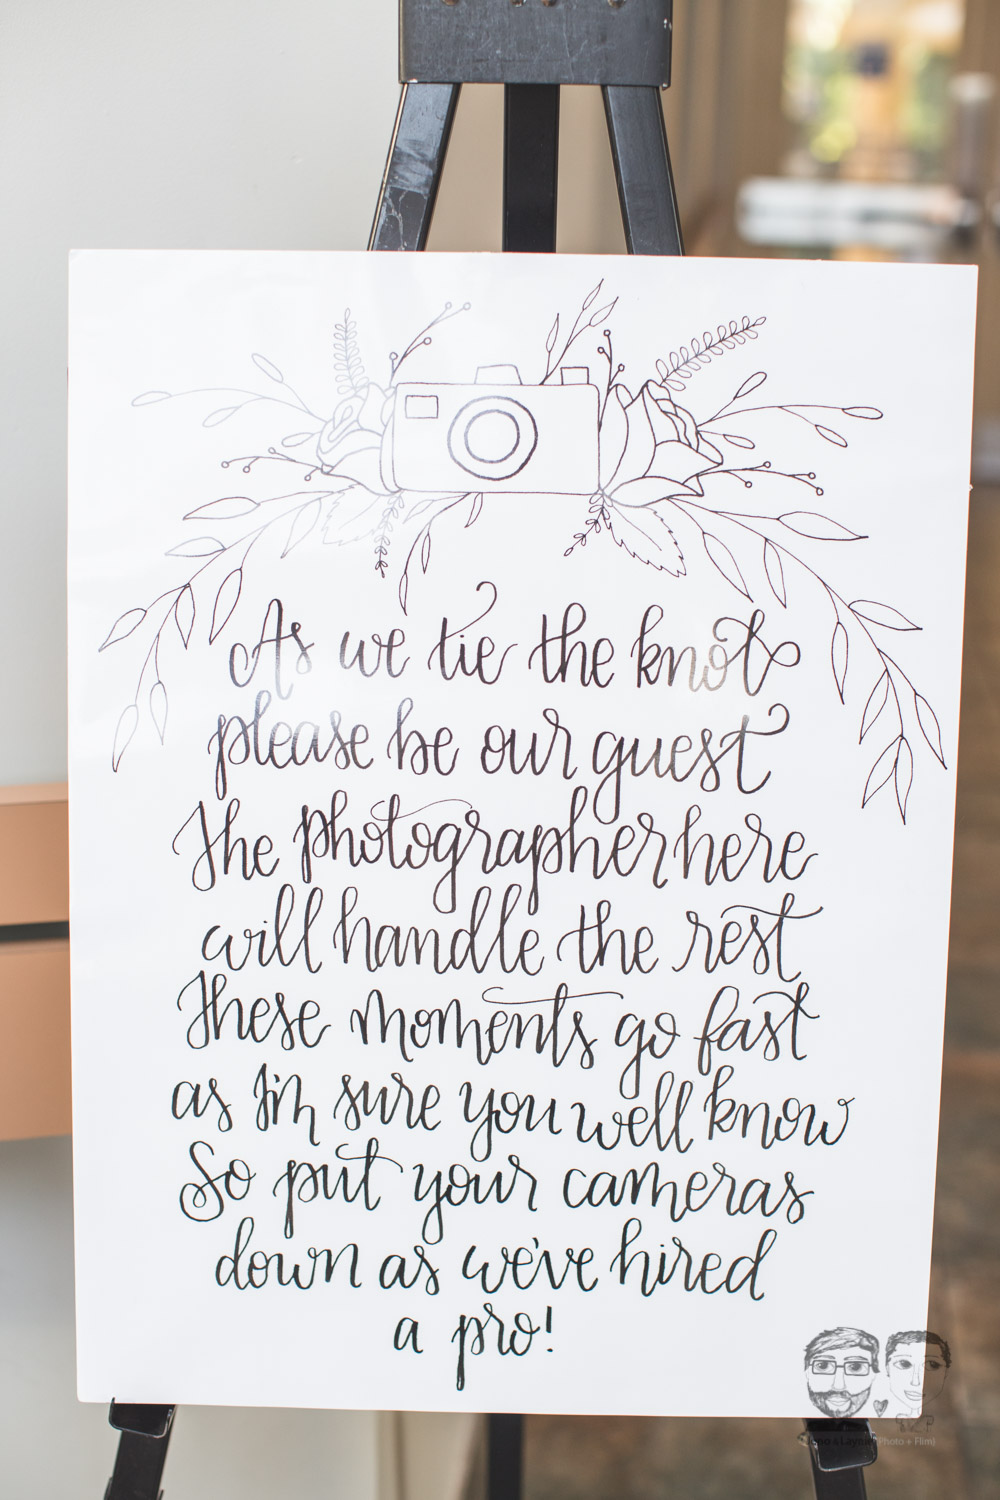 As we tie the knot
please be our guest
The photographer here
will handle the rest
These moments go fast
as I'm sure you well know
So put your cameras
down as we've hired
a pro!
Photo + Film)